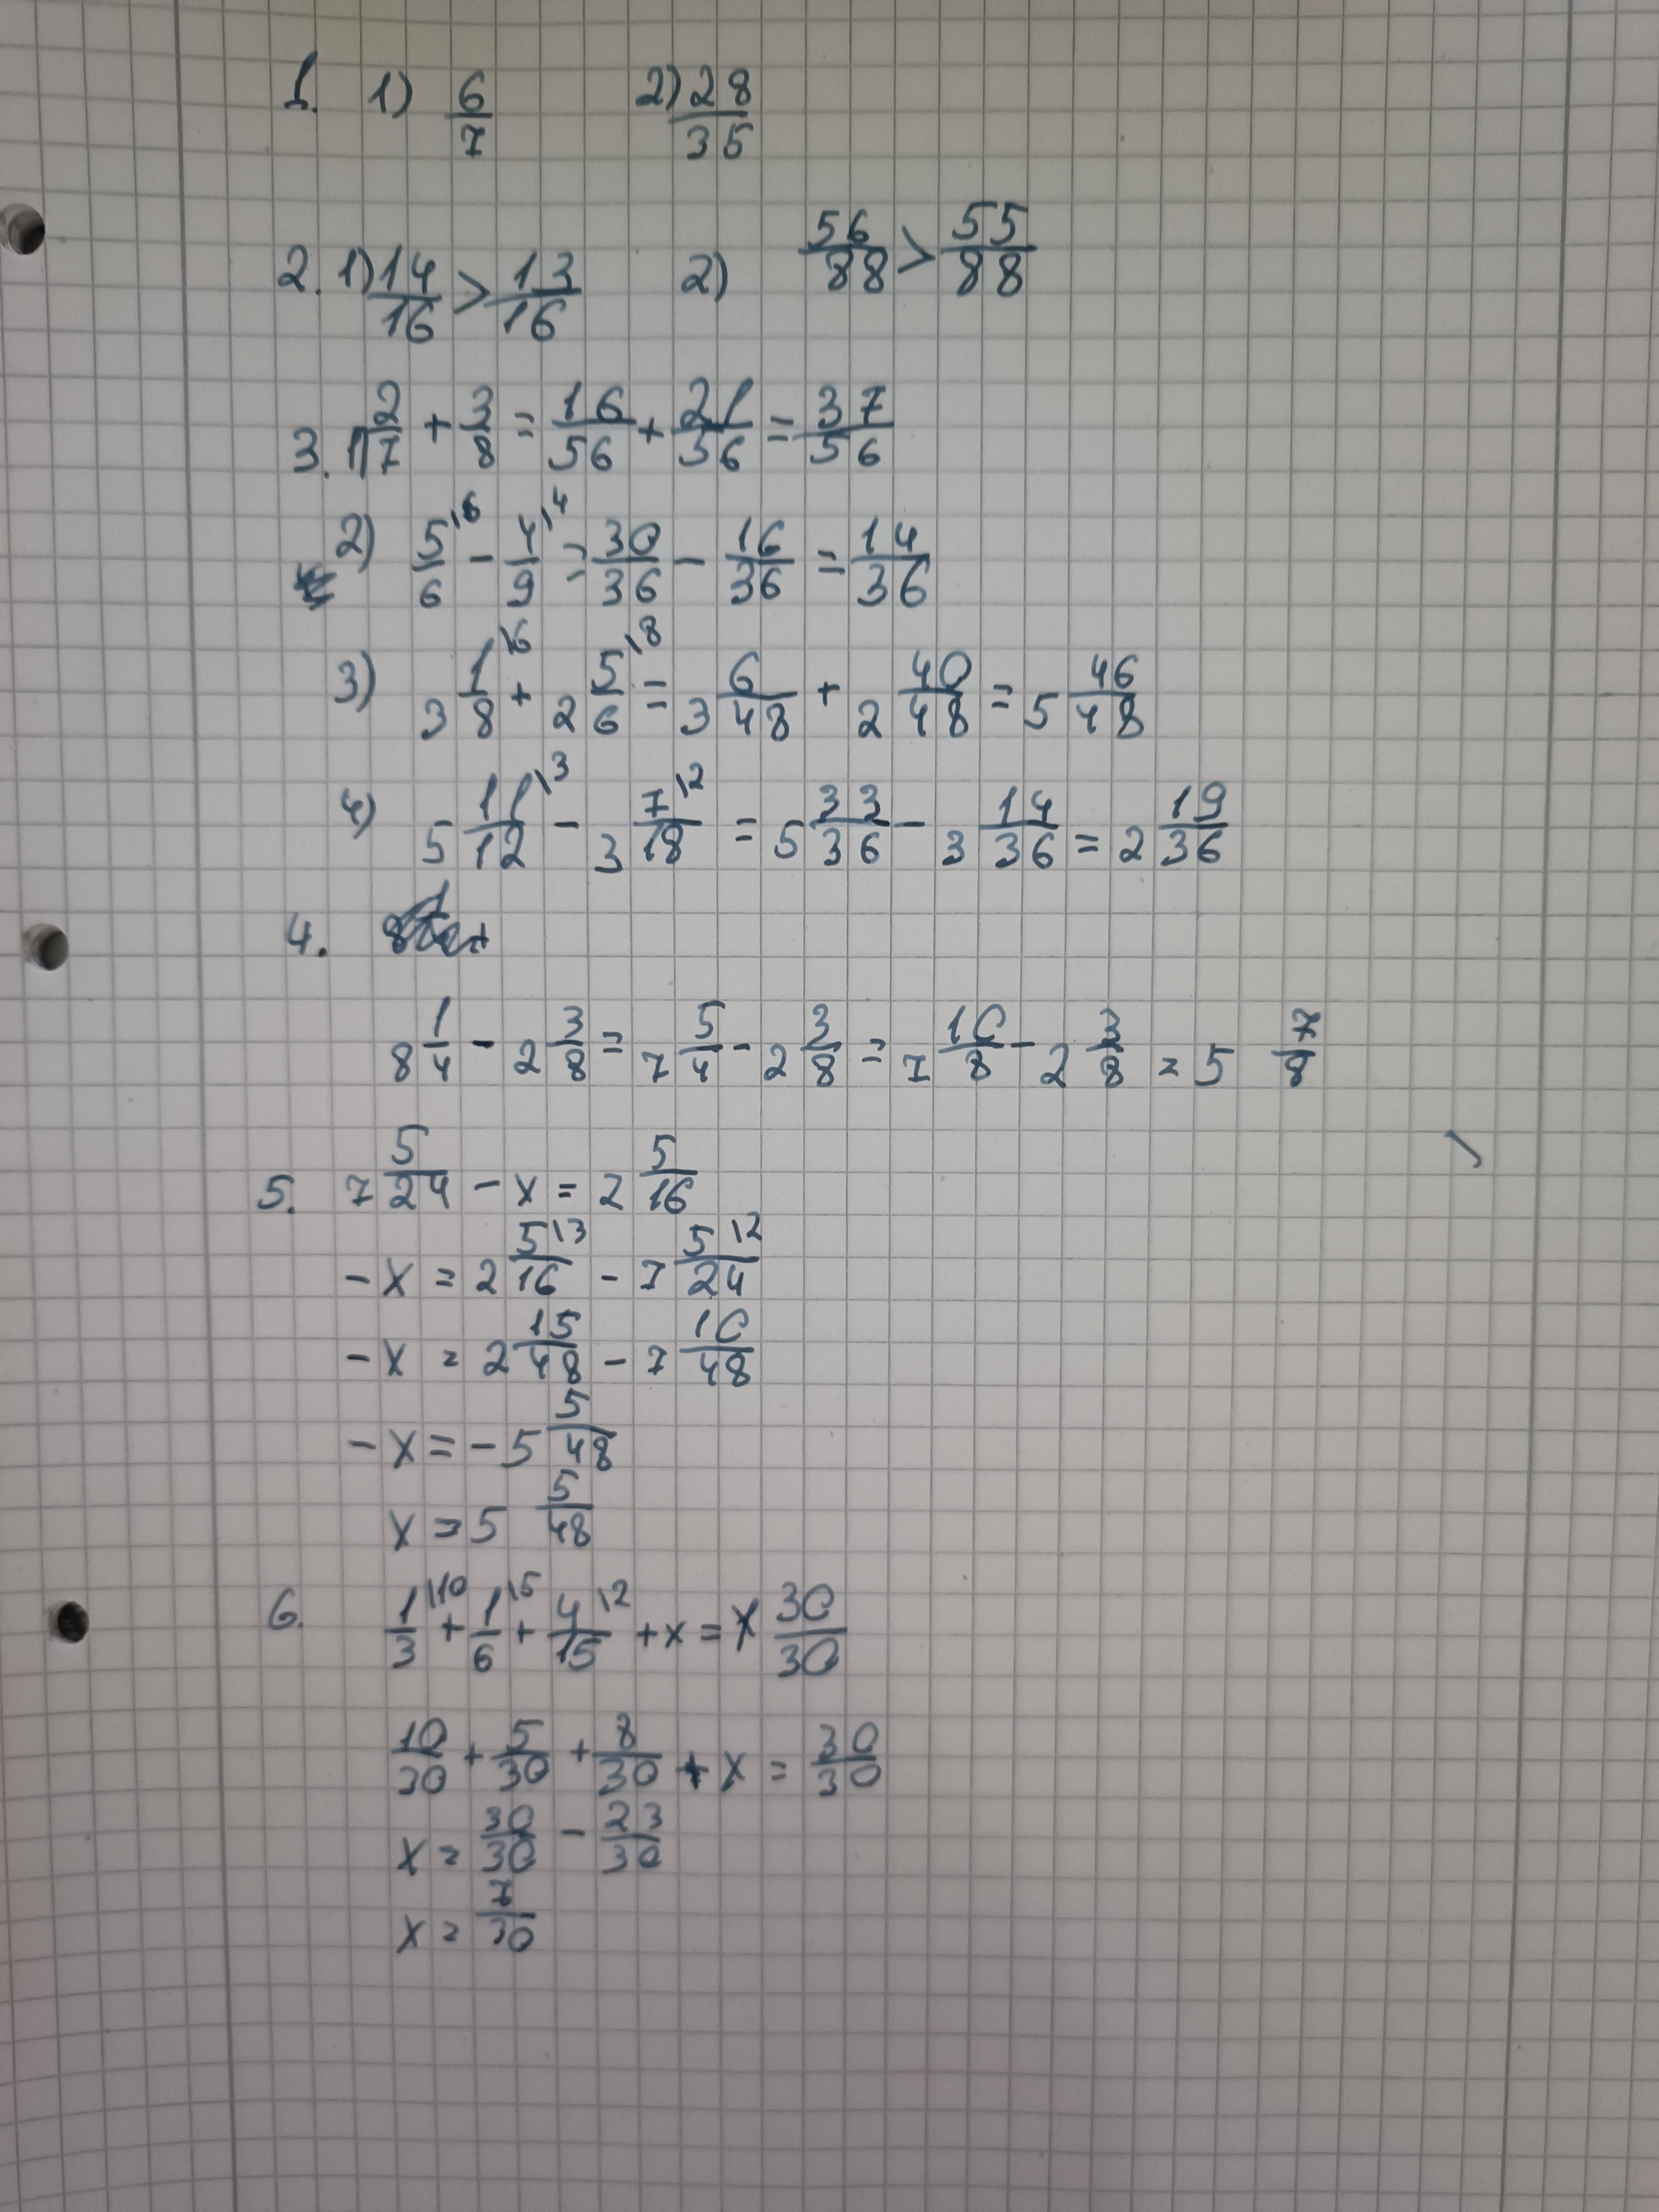 1. 1) 6/7 2) 28/35
2. 1) 14/16 > 13/16 2) 56/88 > 55/88
3. 1) 2/7 + 3/8 = 16/56 + 21/56 = 37/56
2) 5\6/6 - 4\4/9 = 30/36 - 16/36 = 14/36
3) 3 1\6/8 + 2 5\8/6 = 3 6/48 + 2 40/48 = 5 46/48
4) 5 11\3/12 - 3 7\2/18 = 5 33/36 - 3 14/36 = 2 19/36
4.
8 1/4 - 2 3/8 = 7 5/4 - 2 3/8 = 7 10/8 - 2 3/8 = 5 7/8
5. 7 5/24 - x = 2 5/16
- x = 2 5\3/16 - 7 5\2/24
- x = 2 15/48 - 7 10/48
- x = - 5 5/48
x = 5 5/48
6. 1\10/3 + 1\5/6 + 4\2/15 + x = 30/30
10/30 + 5/30 + 8/30 + x = 30/30
x = 30/30 - 23/30
x = 7/30